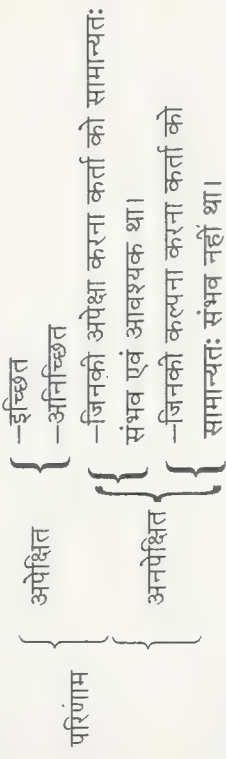 परिणाम
अपेक्षित
–इच्छित
–अनिच्छित
अनपेक्षित
–जिनकी अपेक्षा करना कर्ता को सामान्यतः
संभव एवं आवश्यक था।
–जिनकी कल्पना करना कर्ता को
सामान्यतः संभव नहीं था।